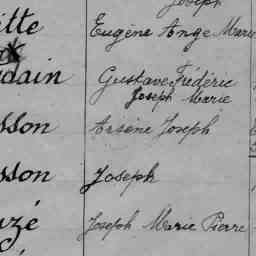 Joseph
itte Eugène Ange Marie
dain Gustave Frédéric
Joseph Marie
sson Arsène Joseph
sson Joseph
uzé Joseph Marie Pierre